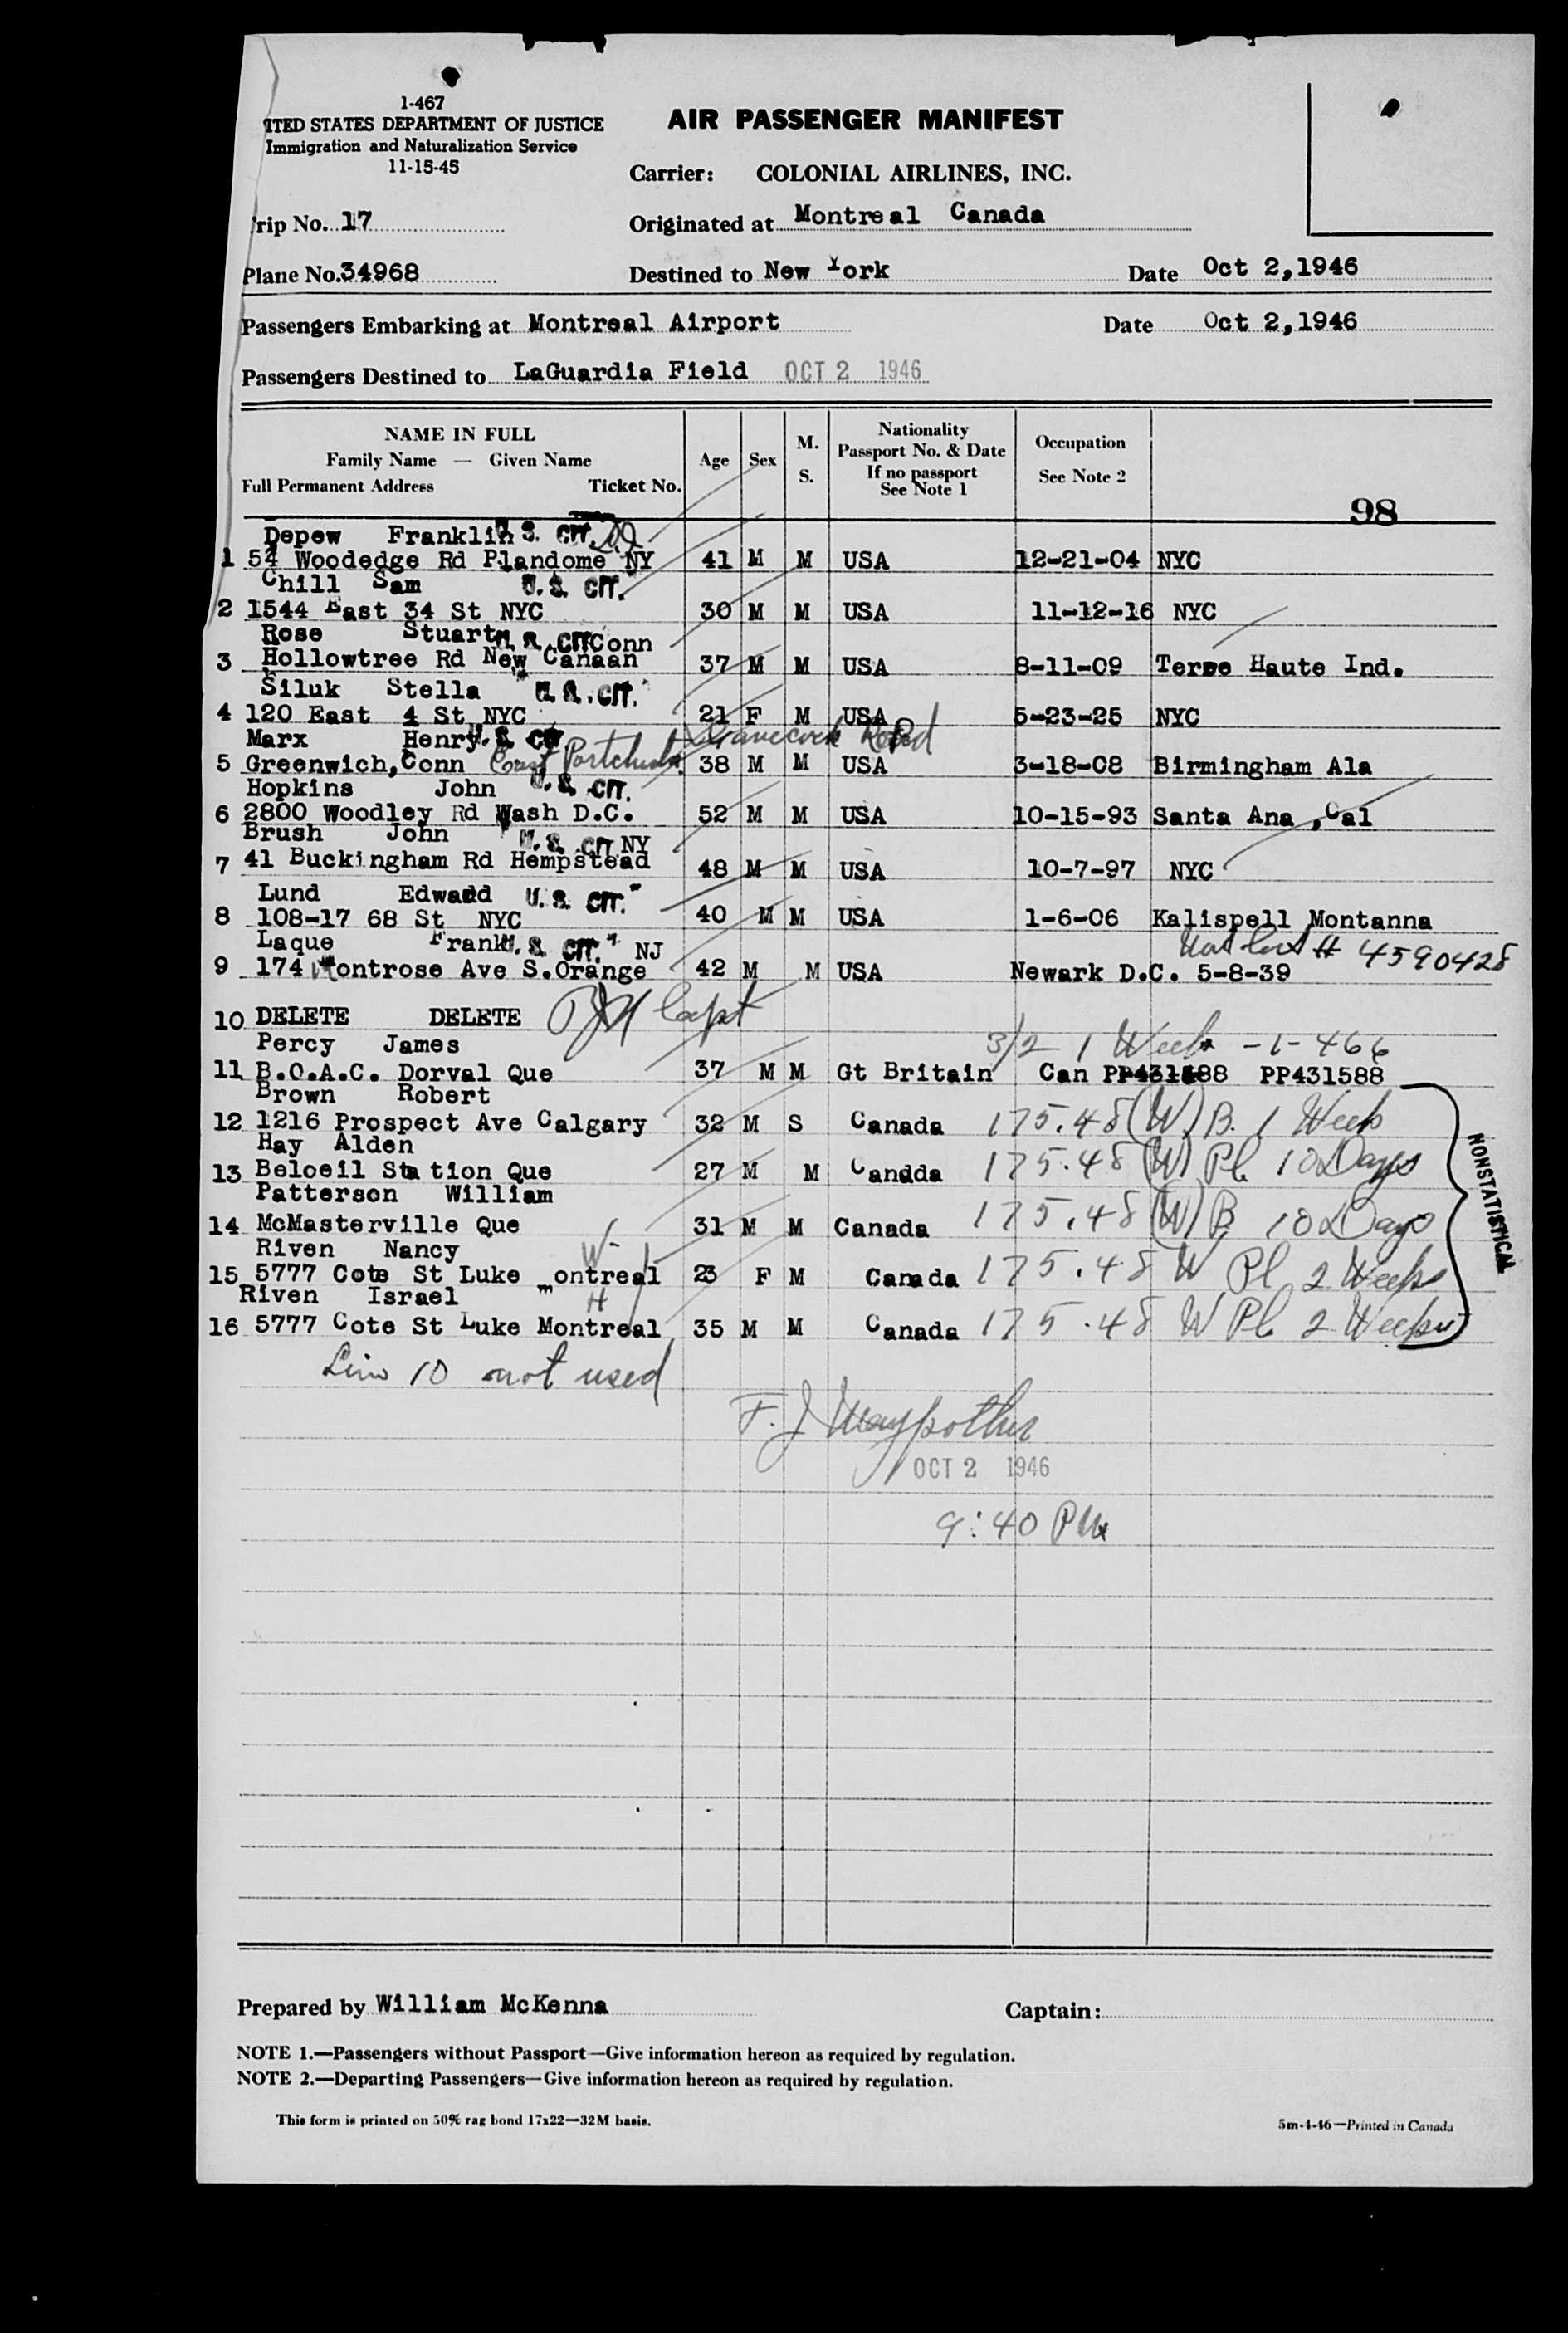 1-467
ITED STATES DEPARTMENT OF JUSTICE
Immigration and Naturalization Service
11-15-45
AIR PASSENGER MANIFEST
Carrier: COLONIAL AIRLINES, INC.
rip No. 17
Originated at Montreal Canada
Plane No. 34968
Destined to New York
Date Oct 2,1946
Passengers Embarking at Montreal Airport
Date Oct 2,1946
Passengers Destined to LaGuardia Field OCT 2 1946
NAME IN FULL
Family Name — Given Name
Full Permanent Address Ticket No.
Age
Sex
M.
S.
Nationality
Passport No. & Date
If no passport
See Note 1
Occupation
See Note 2
98
Depew Franklin U. S. CIT.
1 54 Woodedge Rd Plandome NY 41 M M USA 12-21-04 NYC
Chill Sam U. S. CIT.
2 1544 East 34 St NYC 30 M M USA 11-12-16 NYC
Rose Stuart U. S. CIT. Conn
3 Hollowtree Rd New Canaan 37 M M USA 8-11-09 Terre Haute Ind.
Siluk Stella U. S. CIT.
4 120 East 4 St NYC 21 F M USA 5-23-25 NYC
Marx Henry U. S. CIT Road
5 Greenwich, Conn East Portchester 38 M M USA 3-18-08 Birmingham Ala
Hopkins John U. S. CIT.
6 2800 Woodley Rd Wash D.C. 52 M M USA 10-15-93 Santa Ana ,Cal
Brush John U. S. CIT NY
7 41 Buckingham Rd Hempstead 48 M M USA 10-7-97 NYC
Lund Edwadd U. S. CIT.
8 108-17 68 St NYC 40 M M USA 1-6-06 Kalispell Montanna
Laque Frank U. S. CIT. NJ Nat Cert # 4590428
9 174 Montrose Ave S.Orange 42 M M USA Newark D.C. 5-8-39
10 DELETE DELETE Capt
Percy James 3/2 1 Week -1-466
11 B.O.A.C. Dorval Que 37 M M Gt Britain Can PP431588 PP431588
Brown Robert
12 1216 Prospect Ave Calgary 32 M S Canada 175.48 (W) B. 1 Week
Hay Alden
13 Beloeil Station Que 27 M M Candda 175.48 (W) Pl 10 Days
Patterson William
14 McMasterville Que 31 M M Canada 175.48 (W) B 10 Days
Riven Nancy W
15 5777 Cote St Luke montreal 23 F M Canada 175.48 W Pl 2 Weeks
Riven Israel H
16 5777 Cote St Luke Montreal 35 M M Canada 175.48 W Pl 2 Weeks
NONSTATISTICAL
Line 10 not used
OCT 2 1946
9:40 PM
Prepared by William McKenna
Captain:
NOTE 1.—Passengers without Passport—Give information hereon as required by regulation.
NOTE 2.—Departing Passengers—Give information hereon as required by regulation.
This form is printed on 50% rag bond 17x22—32M basis.
5m-4-46—Printed in Canada